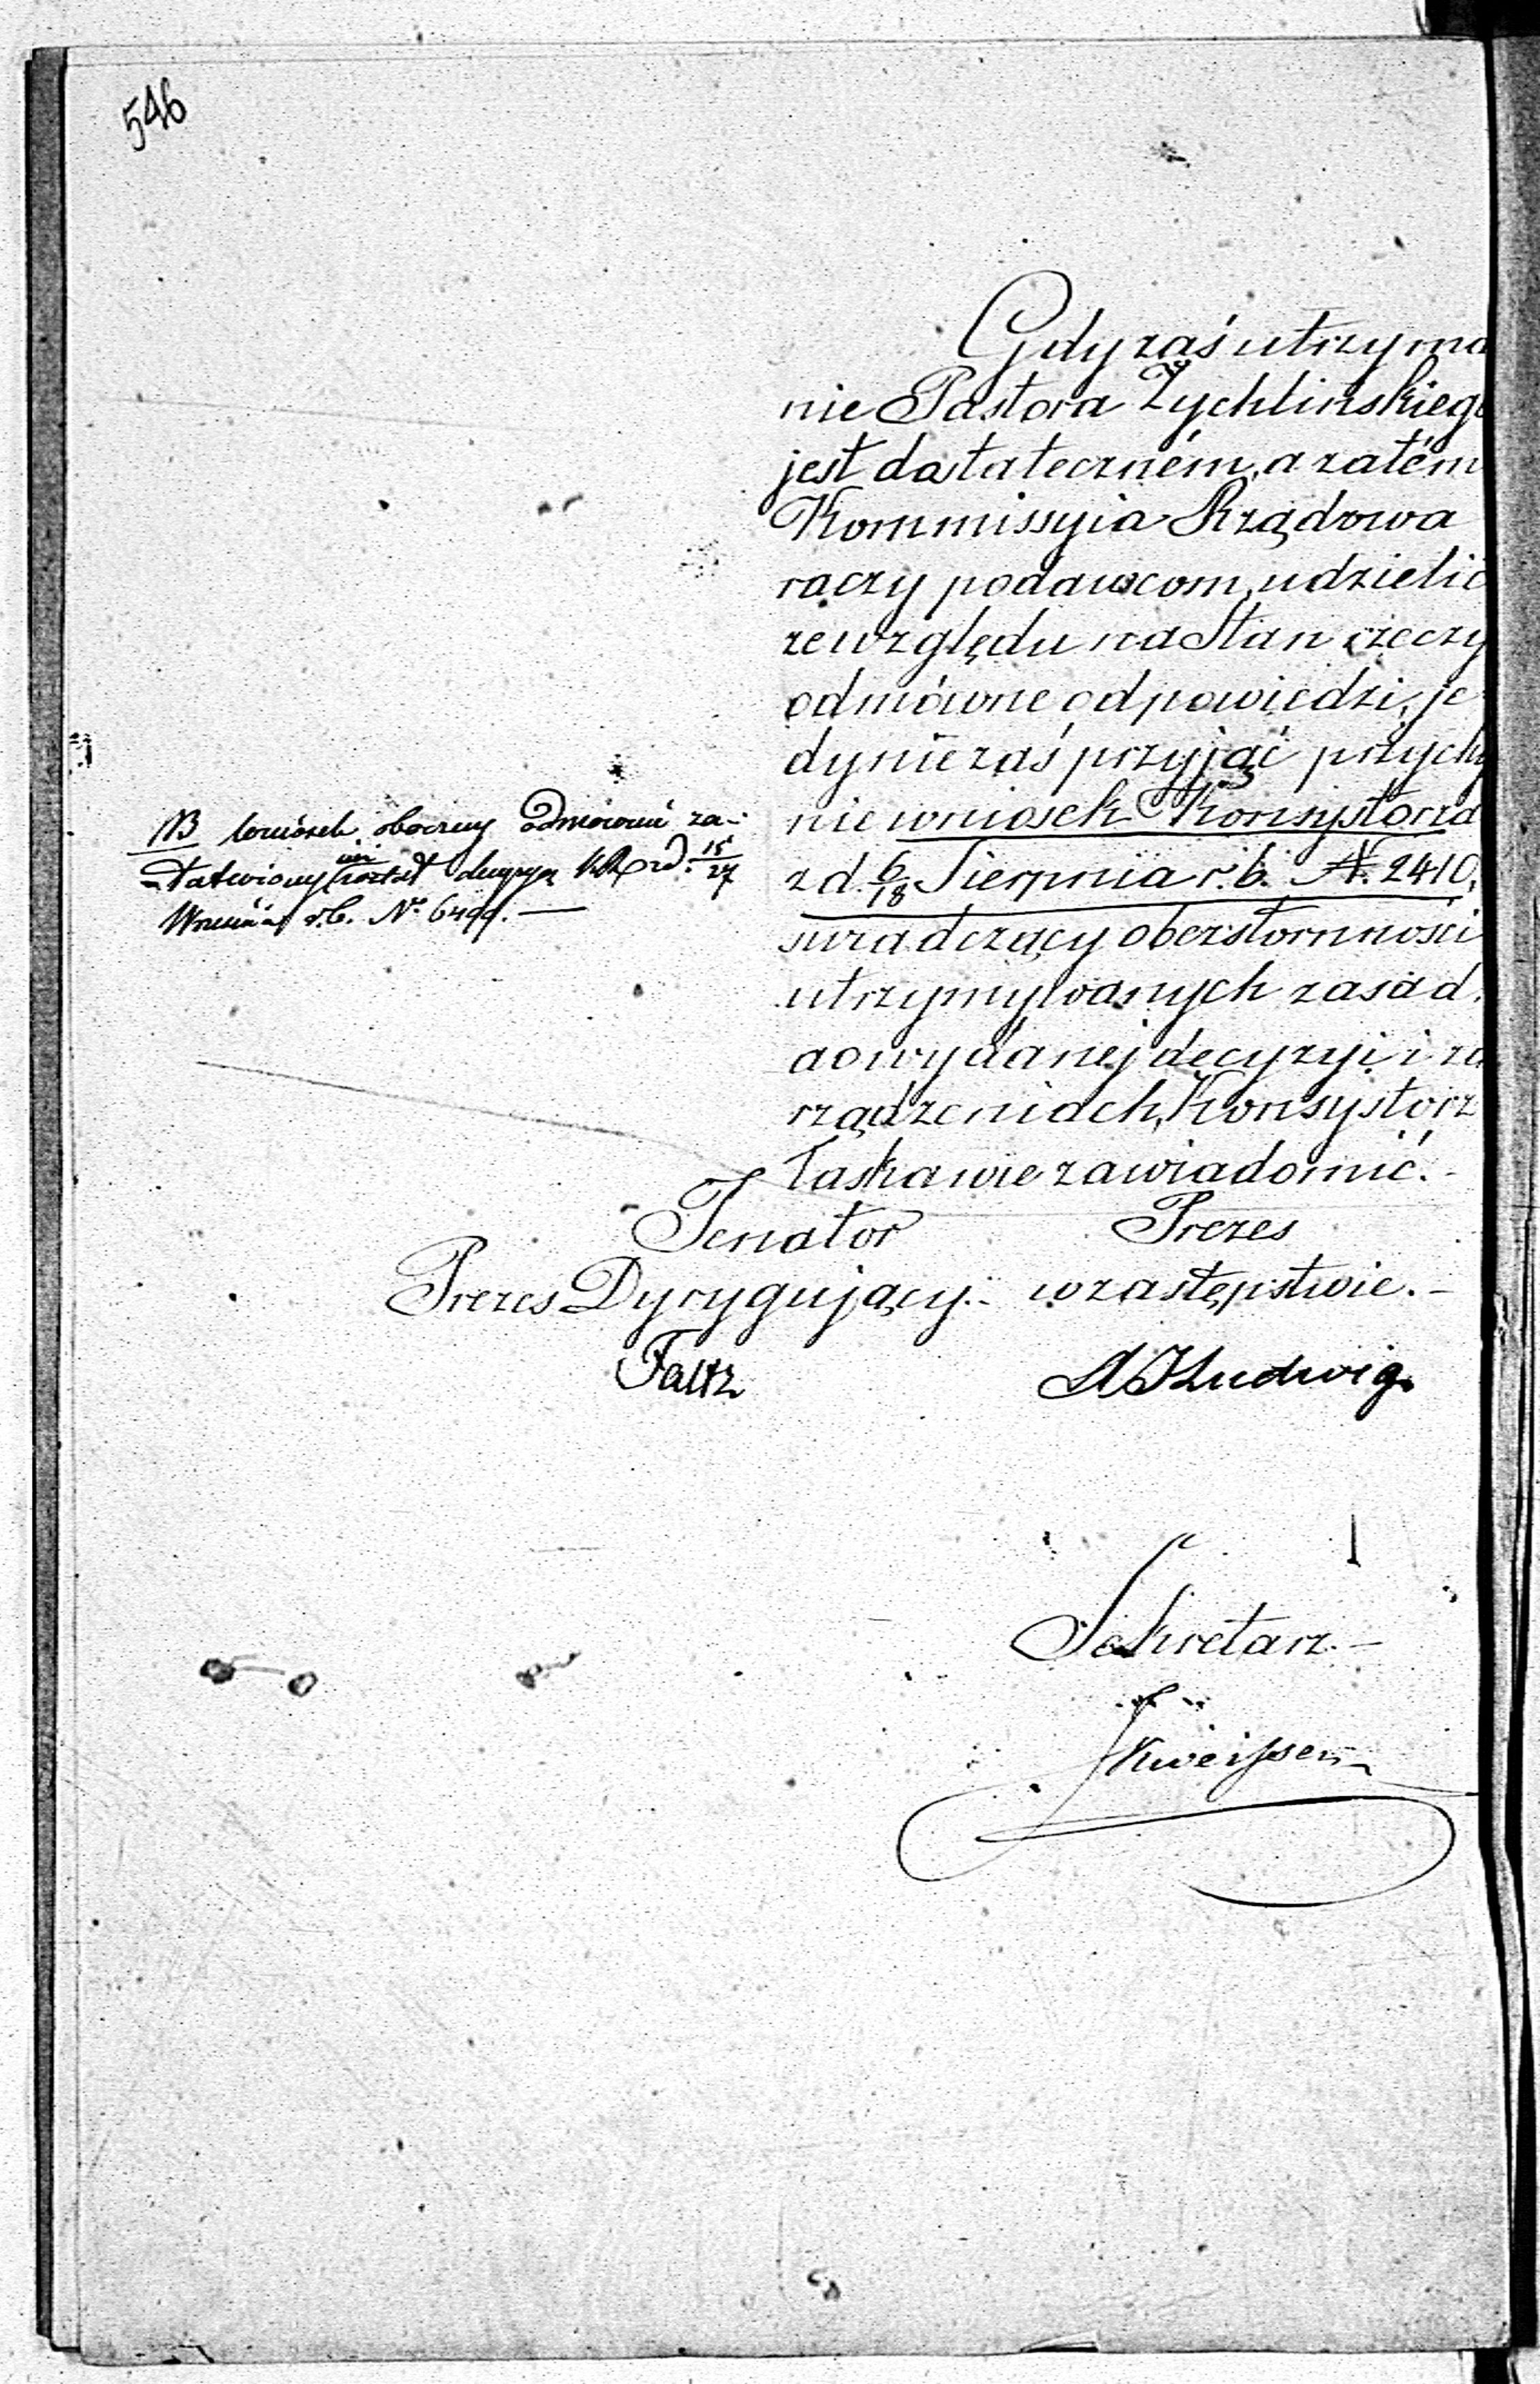 546
Gdy zaś utrzyma
nie Pastora Żychlińskiego
jest dostateczném, a zatém
Kommissyia Rządowa
raczy podawcom, udzielić
ze względu na Stan rzeczy
odmówne odpowiedzi, je
dynie zaś przyjąć przych
nie wniosek Konsystorza
z d. 6/18 Sierpnia r. b. N. 2410,
świadczący o bezstornności
utrzymywanych zasad,
a o wydanej decyzyi i za
rządzeniach, Konsystorz
łaskawie zawiadomić. -
NB wniosek oboczny odmownie za-
-łatwiony został decyzyą KR z d. 15/27
Września r. b. N° 6499. —
Senator
Prezes Dyrygujący. -
Faltz
Prezes
w zastępstwie. -
A Ludwig.
Sekretarz. -